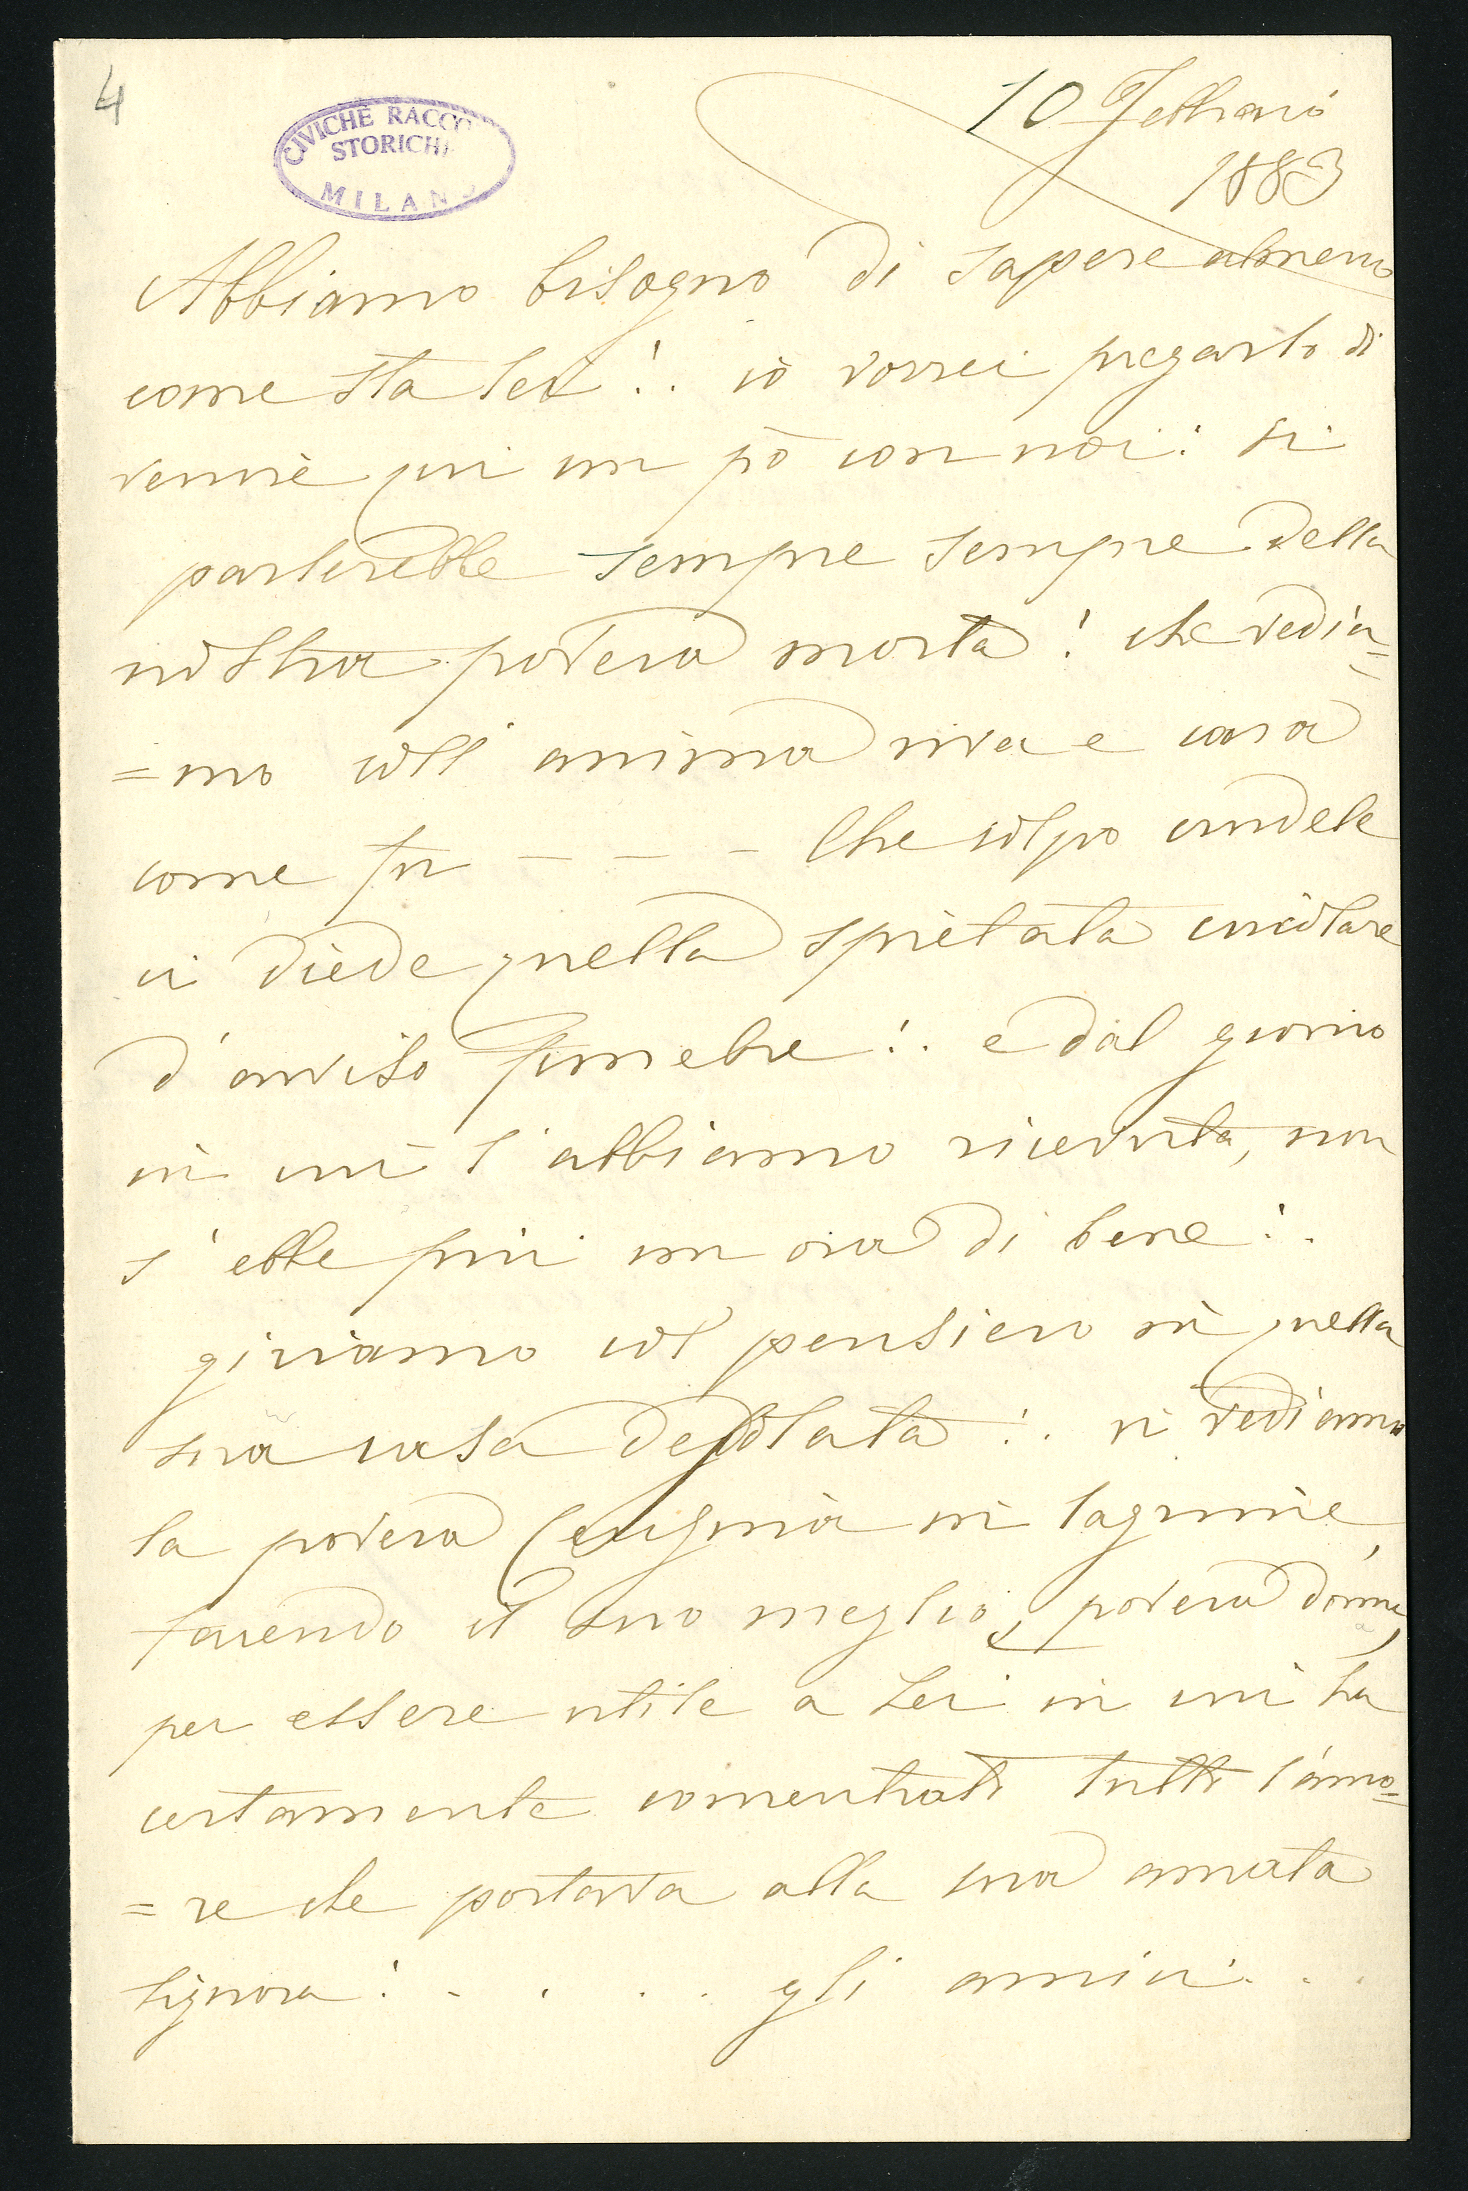 4
CIVICHE RACCO
STORICH
MILANO
10 Febbraio
1883
Abbiamo bisogno di sapere almeno
come sta lei!. io vorrei pregarlo di
venire qui un pò con noi! si
parlerebbe sempre sempre della
nostra povera morta! che vedia=
=mo coll' anima viva e cara
come fu - - - Che colpo crudele
ci diede quella spietata circolare
d'avviso funebre!. e dal giorno
in cui l'abbiamo ricevuta, non
s'ebbe più un ora di bene!.
giriamo col pensiero in quella
sua casa desolata!. vi vediamo
la povera Eugenia in lagrime,
facendo il suo meglio, povera donna,
per essere utile a Lei in cui ha
certamente concentrato tutto l'amo=
=re che portava alla sua amata
signora! . . . . gli amici . . .